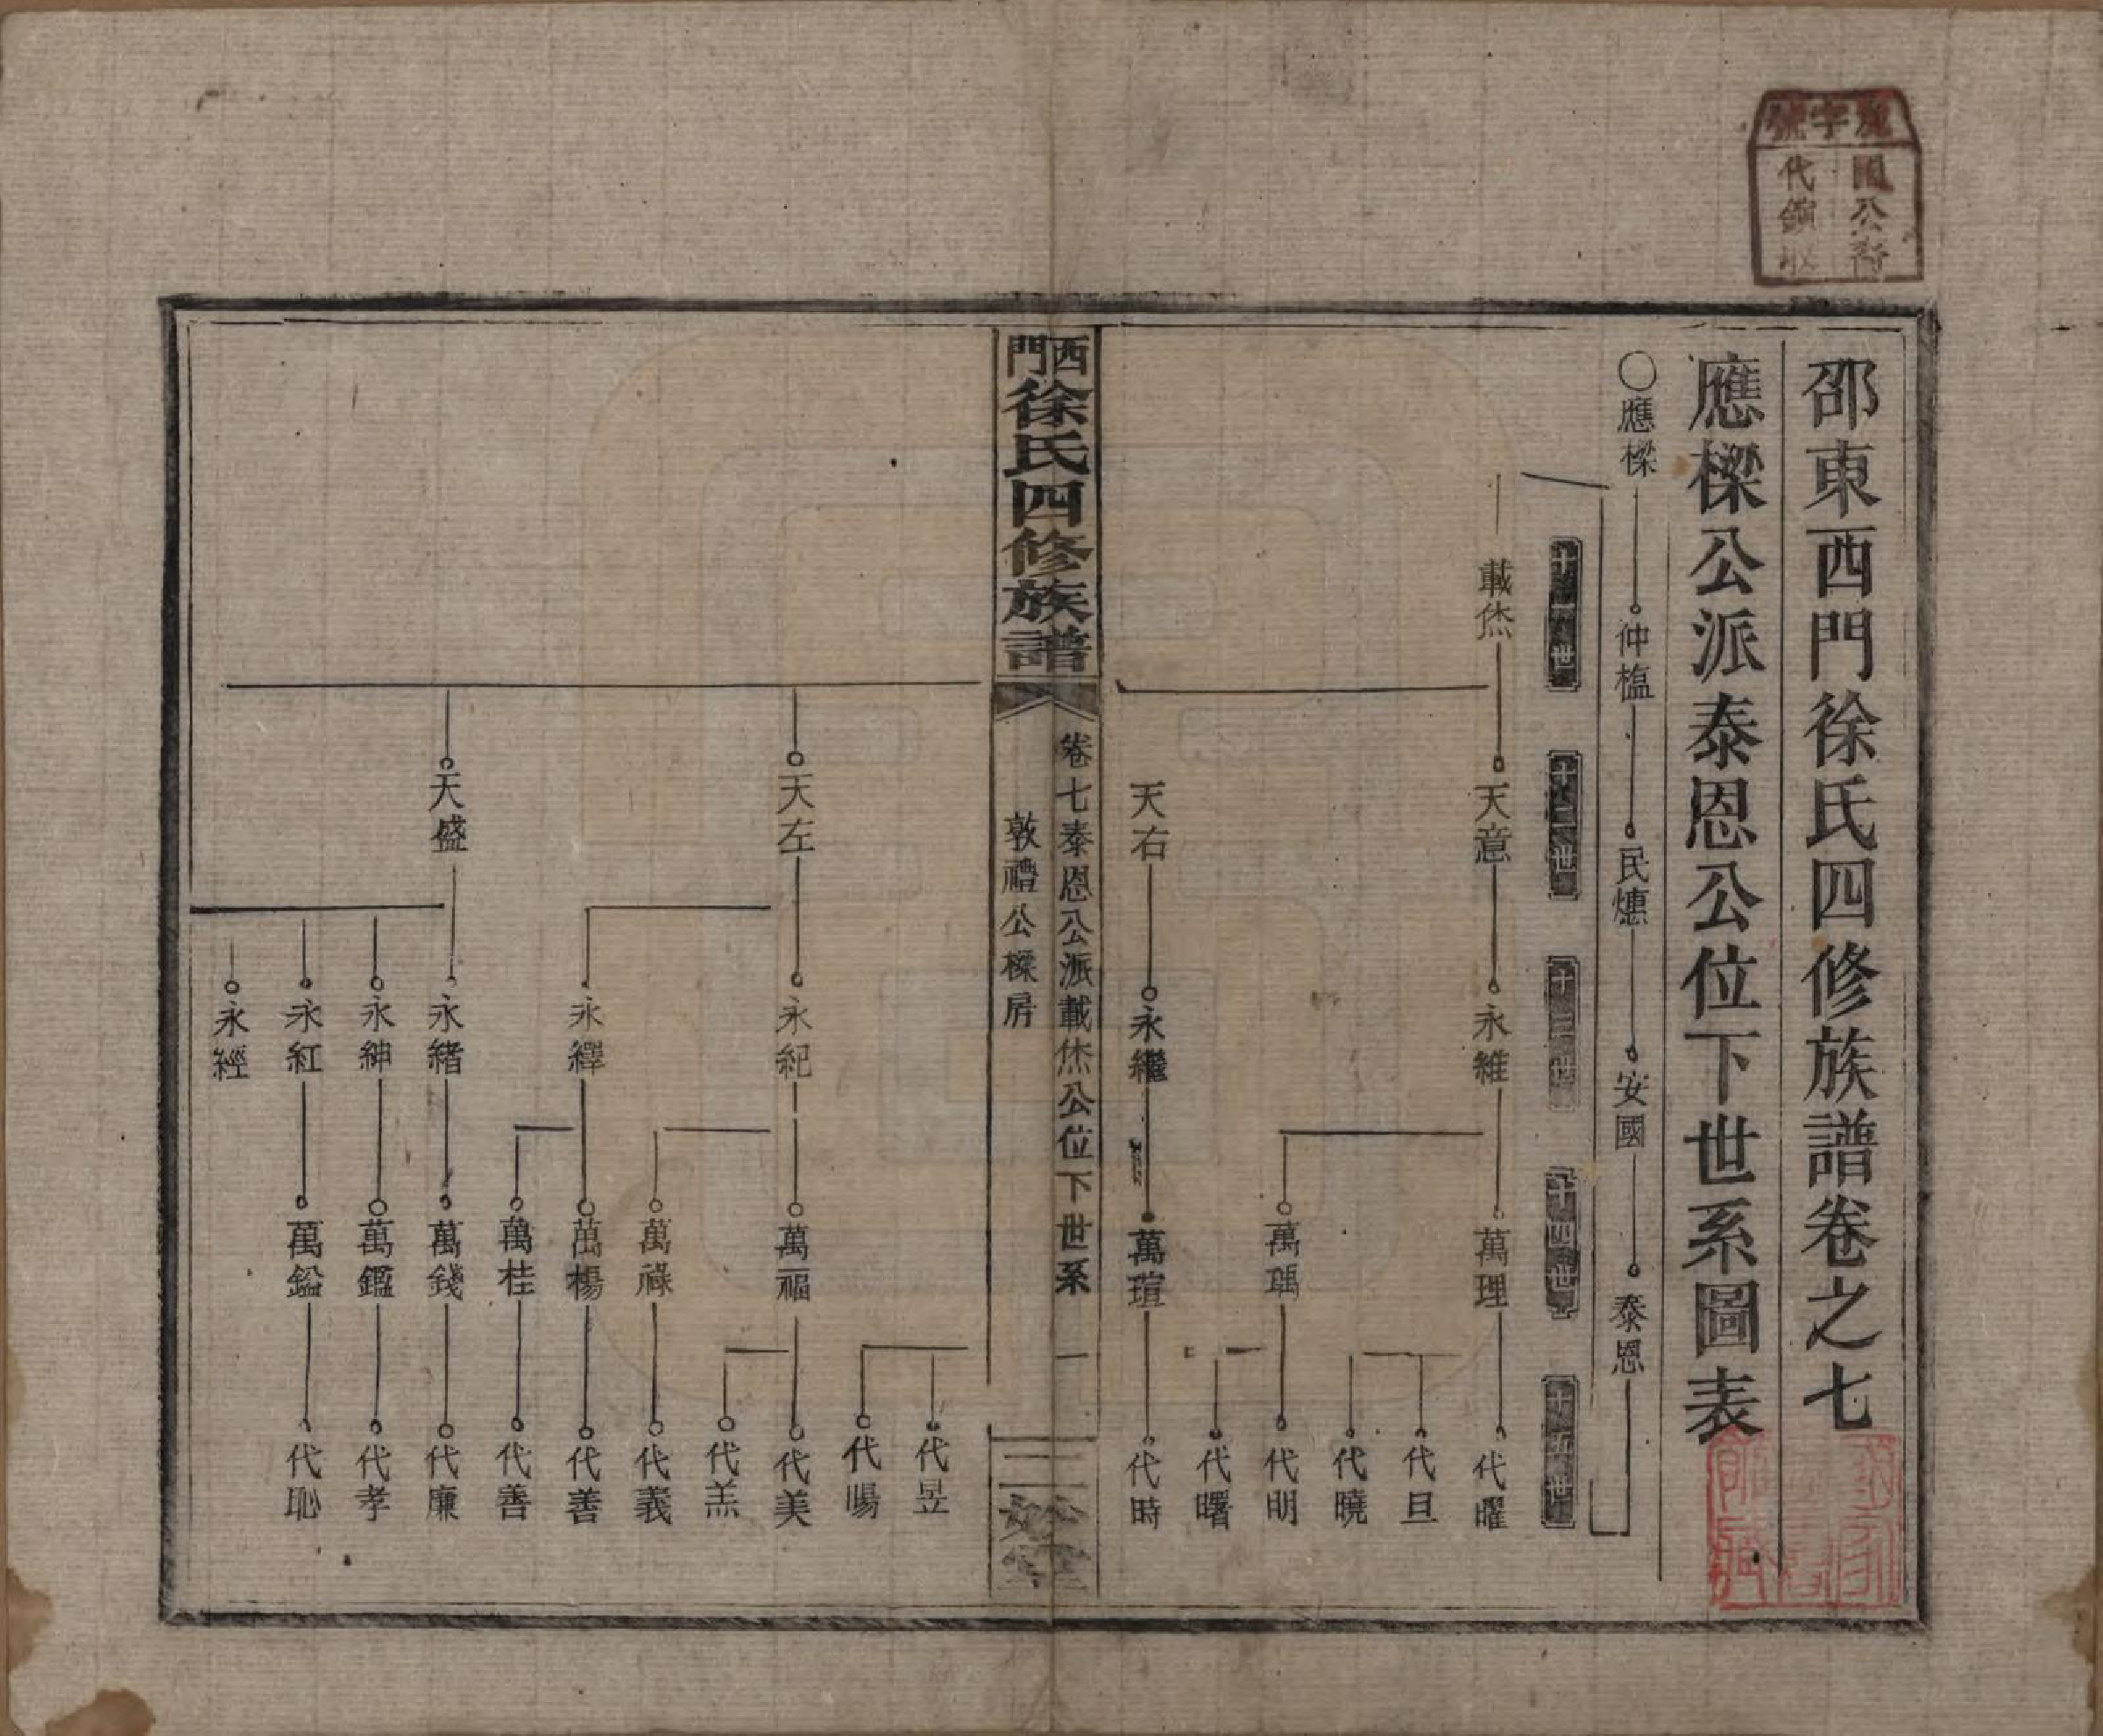 邵東西門徐氏四修族譜卷之七
應樑公派泰恩公位下世系圖表
〇應樑 仲榲 民㷴 安國 泰恩
十一世 十二世 十三世 十四世 十五世
載烋 天意 永維 萬理 代曜
代旦
代曉
萬瑀 代明
代曙
天右 永繼 萬瑄 代時
西門徐氏四修族譜
卷七泰恩公派載烋公位下世系 一
敦禮公樑房
代昱
代暘
天左 永紀 萬福 代美
代羔
萬祿 代義
永繹 萬楊 代善
萬桂 代善
天盛 永緒 萬錢 代廉
永紳 萬鑑 代孝
永紅 萬鎰 代恥
永經
字號
公裔
代領